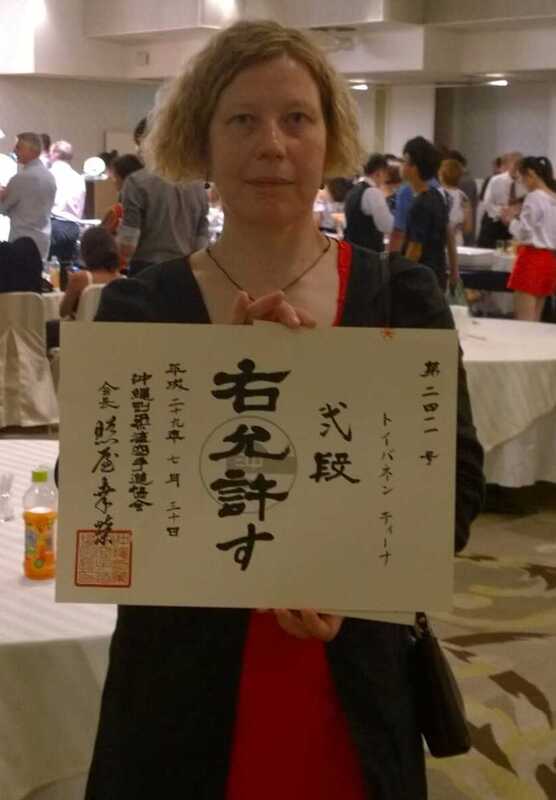 第二四二号
トイバネン ティーナ
弐段
右允許す
平成二十九年七月三十日
沖縄剛柔流空手道協会
会長 照屋幸榮